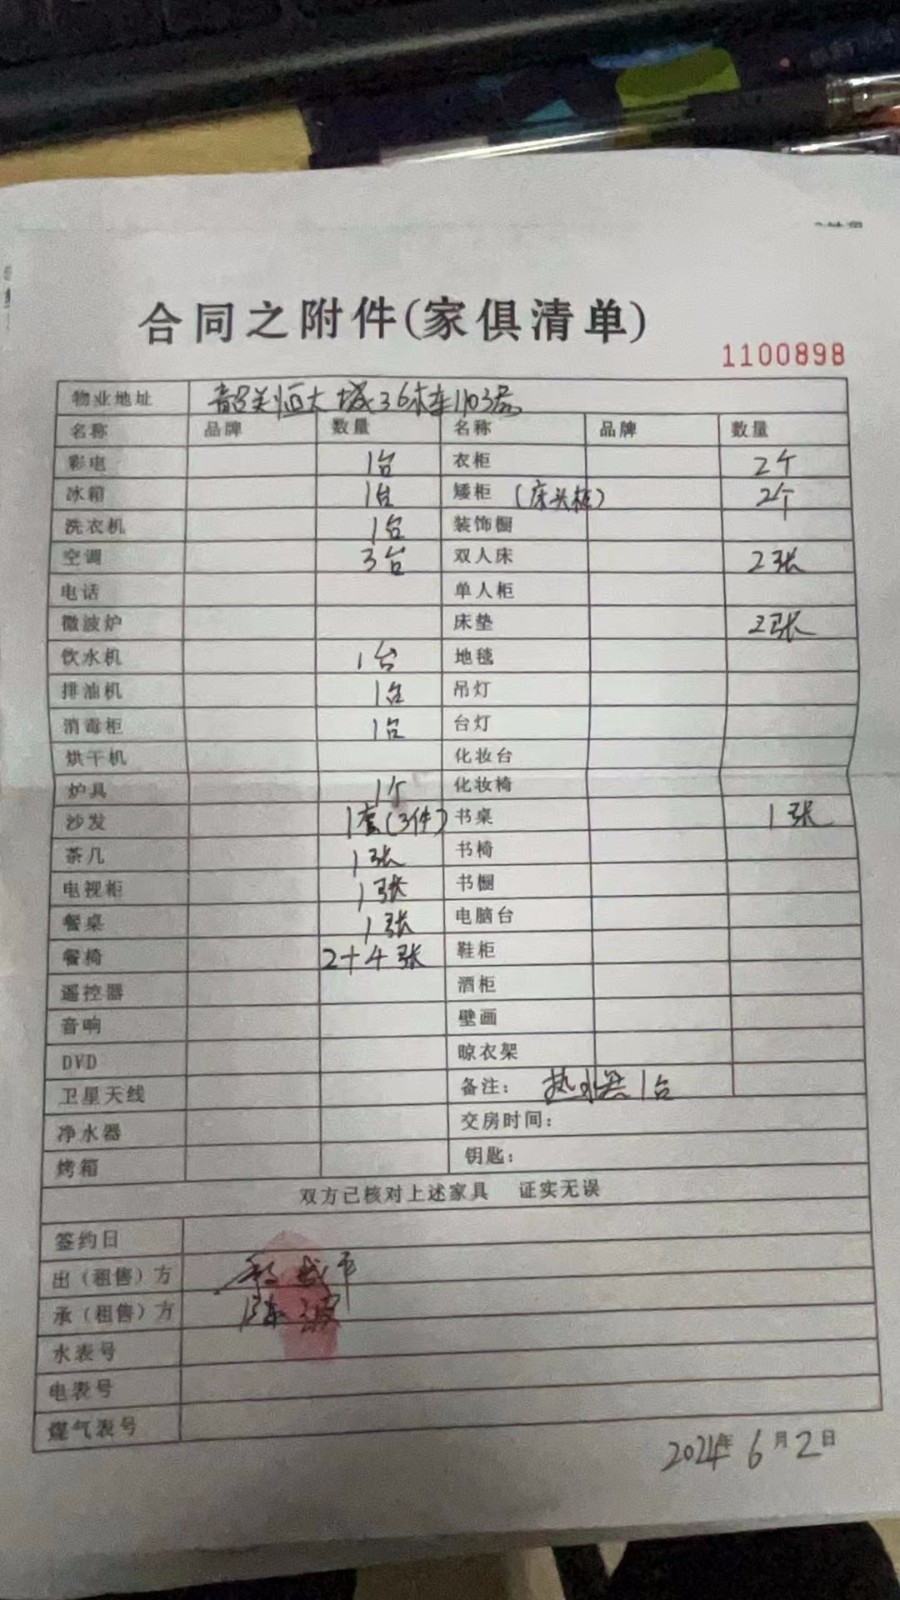 合同之附件(家俱清单)
1100898
物业地址 韶关恒大城36栋1103房
名称 品牌 数量 名称 品牌 数量
彩电 1台 衣柜 2个
冰箱 1台 矮柜 (床头柜) 2个
洗衣机 1台 装饰橱
空调 3台 双人床 2张
电话 单人柜
微波炉 床垫 2张
饮水机 1台 地毯
排油机 1台 吊灯
消毒柜 1台 台灯
烘干机 化妆台
炉具 1个 化妆椅
沙发 1套(3件) 书桌 1张
茶几 1张 书椅
电视柜 1张 书橱
餐桌 1张 电脑台
餐椅 2+4张 鞋柜
遥控器 酒柜
音响 壁画
DVD 晾衣架
卫星天线 备注: 热水器1台
净水器 交房时间:
烤箱 钥匙:
双方已核对上述家具 证实无误
签约日
出(租售)方
承(租售)方 陈波
水表号
电表号
煤气表号
2024年6月2日